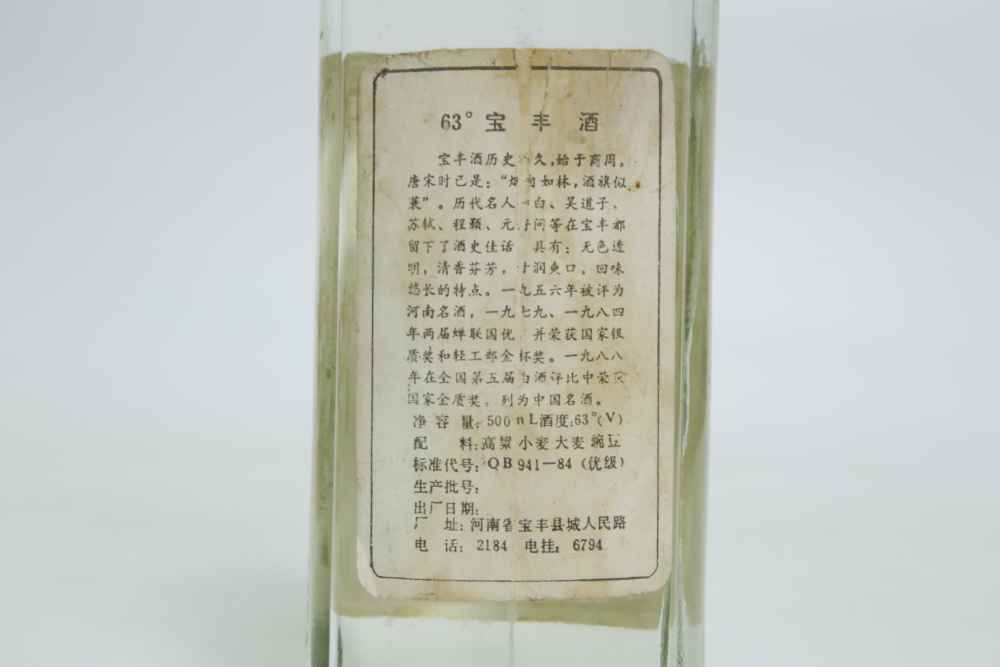 63° 宝 丰 酒
宝丰酒历史 久,始于商周,
唐宋时已是:“烟囱如林,酒旗似
蓑”。历代名人 白、吴道子、
苏轼、程颢、元 问等在宝丰都
留下了酒史佳话 具有:无色透
明,清香芬芳, 润爽口,回味
悠长的特点。一九五六年被评为
河南名酒,一九七九、一九八四
年两届蝉联国优, 并荣获国家银
质奖和轻工部金杯奖。一九八八
年在全国第五届白酒评比中荣获
国家金质奖,列为中国名酒。
净 容 量: 500mL酒度:63°(V)
配 料:高粱 小麦 大麦 豌豆
标准代号:QB941—84(优级)
生产批号:
出厂日期:
厂 址:河南省宝丰县城人民路
电 话: 2184 电挂: 6794